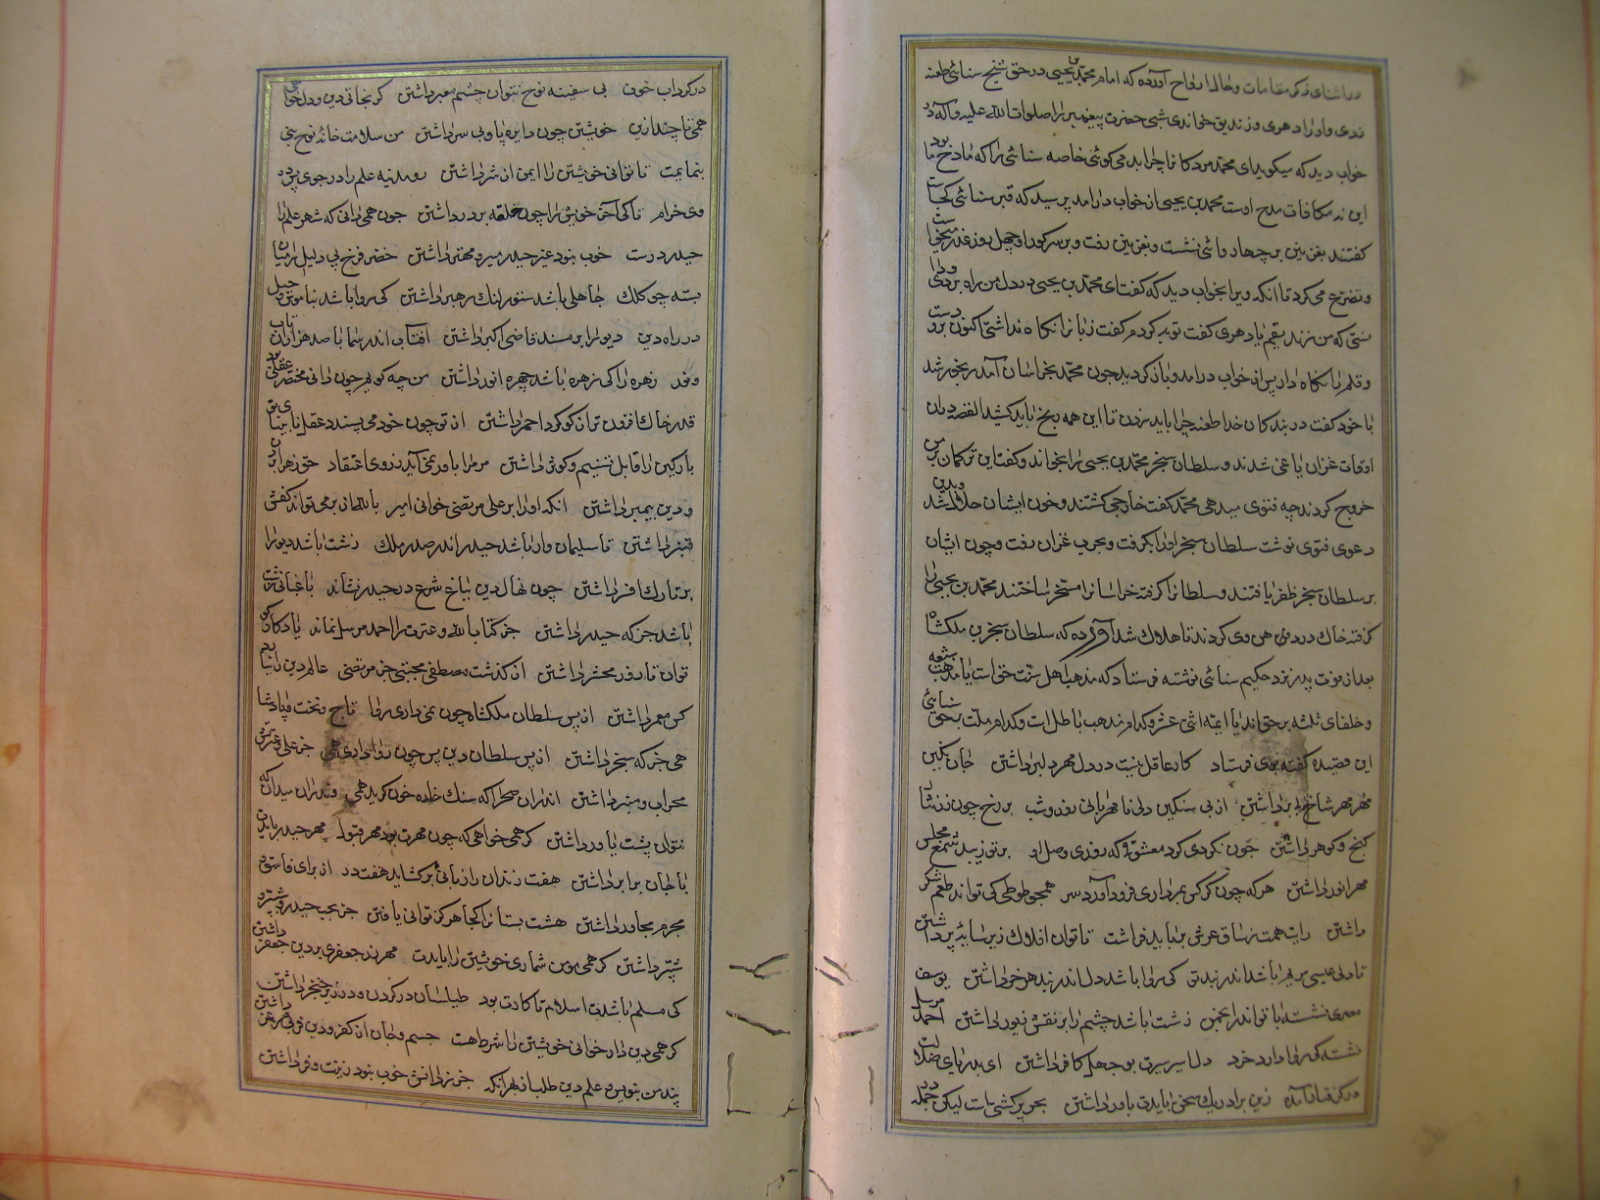 در اثنای ذکر مقامات و حالات ارواح آورده که امام محمد بن یحیی در حق شیخ سنائی طعنه
زدی و او را دهری و زندیق خواندی شبی حضرت پیغمبر را صلوات الله علیه و آله در
خواب دید که میکوید ای محمد مرد کار ما چرا بد می کوئی خاصه سنائی را که مادح ما بود
این نه مکافات مدح اوست محمد بن یحیی از خواب درآمد پرسید که قبر سنائی کجاست
کفتند بغزنین بر چهار وائی نشست و بغزنین رفت و بر سر کور او چهل روز عذر میخواست
و تضرع می کرد تا آنکه ویرا بخواب دید که کفت ای محمد بن یحیی در دل من راه بردی و را
سنتی که من نزند یقم یا دهری کفت توبه کردم کفت زبانرا نکاه نداشتی اکنون برو دست
و قلم را نکاه دار پس از خواب درآمد و باز کردید چون محمد بخراسان آمد رنجور شد
با خود کفت در بندکان خدا طعنه چرا باید زدن تا این همه رنج باید کشید القصه دران
اوقات غزان یاغی شدند و سلطان سنجر محمد بن یحیی را بخواند و کفت این ترکمان بر من
خروج کردند چه فتوی میدهی محمد کفت خارجی کشتند و خون ایشان حلال شد و بدین
دعوی فتوی نوشت سلطان سنجر او را بکرفت و بحرب غزان رفت و چون ایشان
بر سلطان سنجر ظفر یافتند و سلطانرا کرفته خراسانرا مسخر ساختند محمد بن یحیی را
کرفته خاک در دهن وی کردند تا هلاک شد آورده که سلطان سنجر بن ملکشاه
بعد از فوت پدر نزد حکیم سنائی نوشته فرستاد که مذهب اهل سنت حق است یا مذهب شیعه
و خلفای ثلثه بر حق اند یا ائمه اثنی عشر و کدام مذهب باطل است و کدام ملت بر حق سنائی
این قصیده کفته بوی فرستاد کار عاقل نیست در دل مهر دلبر داشتن جان نکین
مهر مهر شاخ بی بر داشتن از پی سنکین دلی نامهربانی روز و شب بر رخ چون زر نثار
کنج و کوهر داشتن چون نکردی کرد معشوقی که روزی وصل او بر تو زیبد شمع مجلس
مهر انور داشتن هر که چون کرکس بمرداری فرود آورد سر همچو طوطی کی تواند طعم شکر
داشتن رایت همت ز ساق عرش بر باید فراشت تا توان افلاک زیر سایه پر داشتن
تا دلی عیسی مریم باشد اندر بند تو کی روا باشد دل اندر بند هر خر داشتن یوسف
مصری نشسته با تو اندر انجمن زشت باشد چشم را بر نقش زیور داشتن احمد مرسل
نشسته کی روا دارد خرد دل اسیر سیرت بوجهل کافر داشتن ای بدریای ضلالت
در کرفتار آمده زین برادر یک سخن بایدت باور داشتن بحر پر کشتی است لیکن جمله در
در کرداب خوف بی سفینه نوح نتوان چشم معبر داشتن کر نجاتی دین و دل خواهی
همی تا چند ازین خویشتن چون دایره پا و بی سر داشتن من سلامت خانه نوح نبی
بنمایمت تا توانی خویشتن را ایمن از شر داشتن رو مدینه علم را در جوی پس در
وی خرام تا کی آخر خویش را چون حلقه بر در داشتن چون همی دانی که شهر علم را
حیدر درست خوب نبود غیر حیدر میر و مهتر داشتن خضر فرخ پی دلیل را میان
بسته چو کلک جاهلی باشد ستور لنک رهبر داشتن کی روا باشد بناموس و حیل
در راه دین دیو را بر مسند قاضی اکبر داشتن آفتاب اندر سما با صد هزاران تاب
و نور زهره را کی زهره باشد چهره انور داشتن من چه کویم چون دانی مختصر عقلی بود
قدر خاک افزون تر از کوکرد احمر داشتن از تو چون خود می پسندد عقل نابینای تو
پارکین را قابل تسنیم و کوثر داشتن مر مرا باور نمی آید ز روی اعتقاد حق زهرا بردن
و دین پیمبر داشتن آنکه او را بر علی مرتضی خوانی امیر بالله ار بر می تواند کفش
قنبر داشتن تا سلیمان وار باشد حیدر اندر صدر ملک زشت باشد دیو را
بر تارک افسر داشتن چون نهال دین بباغ شرع در حیدر نشاند باغبانی زشت
باشد جز که حیدر داشتن جز کتاب الله و عترت را احمد مرسل نماند یادکاری کو
توان تا روز محشر داشتن از کذشت مصطفی مجتبی جز مرتضی عالم دین را نیارد
کس معمر داشتن از پس سلطان ملکشاه چون نمی داری روا تاج و تخت پادشا
هی جز که سنجر داشتن از پس سلطان دین پس چون روا داری همی جز علی و عترتش
محراب و منبر داشتن اندران صحرا که سنک خاره خون کرید همی وندران میدان که
نتوان پشت یاور داشتن کر همی خواهی که چون مهرت بود مهر قبول مهر حیدر بایدت
با جان برابر داشتن هفت زندان را زبانی برکشاید هفت در از برای فاسق و
مجرم مجاور داشتن هشت بستانرا کجا هرکز توانی یافتن جز بحب حیدر و شبیر و
شبر داشتن کر همی مومن شماری خویشتن را بایدت مهر زر جعفری بر دین جعفر داشتن
کی مسلم باشدت اسلام تا کارت بود طیلسان در کردن و در زیر خنجر داشتن
کر همی دین دار خوانی خویشتن را شرط هست جسم و جان از کفر و دین فربی و لاغر داشتن
پند من بنیوش و علم دین طلب از بهر آنکه جز بدانش خوب نبود زینت و فر داشتن